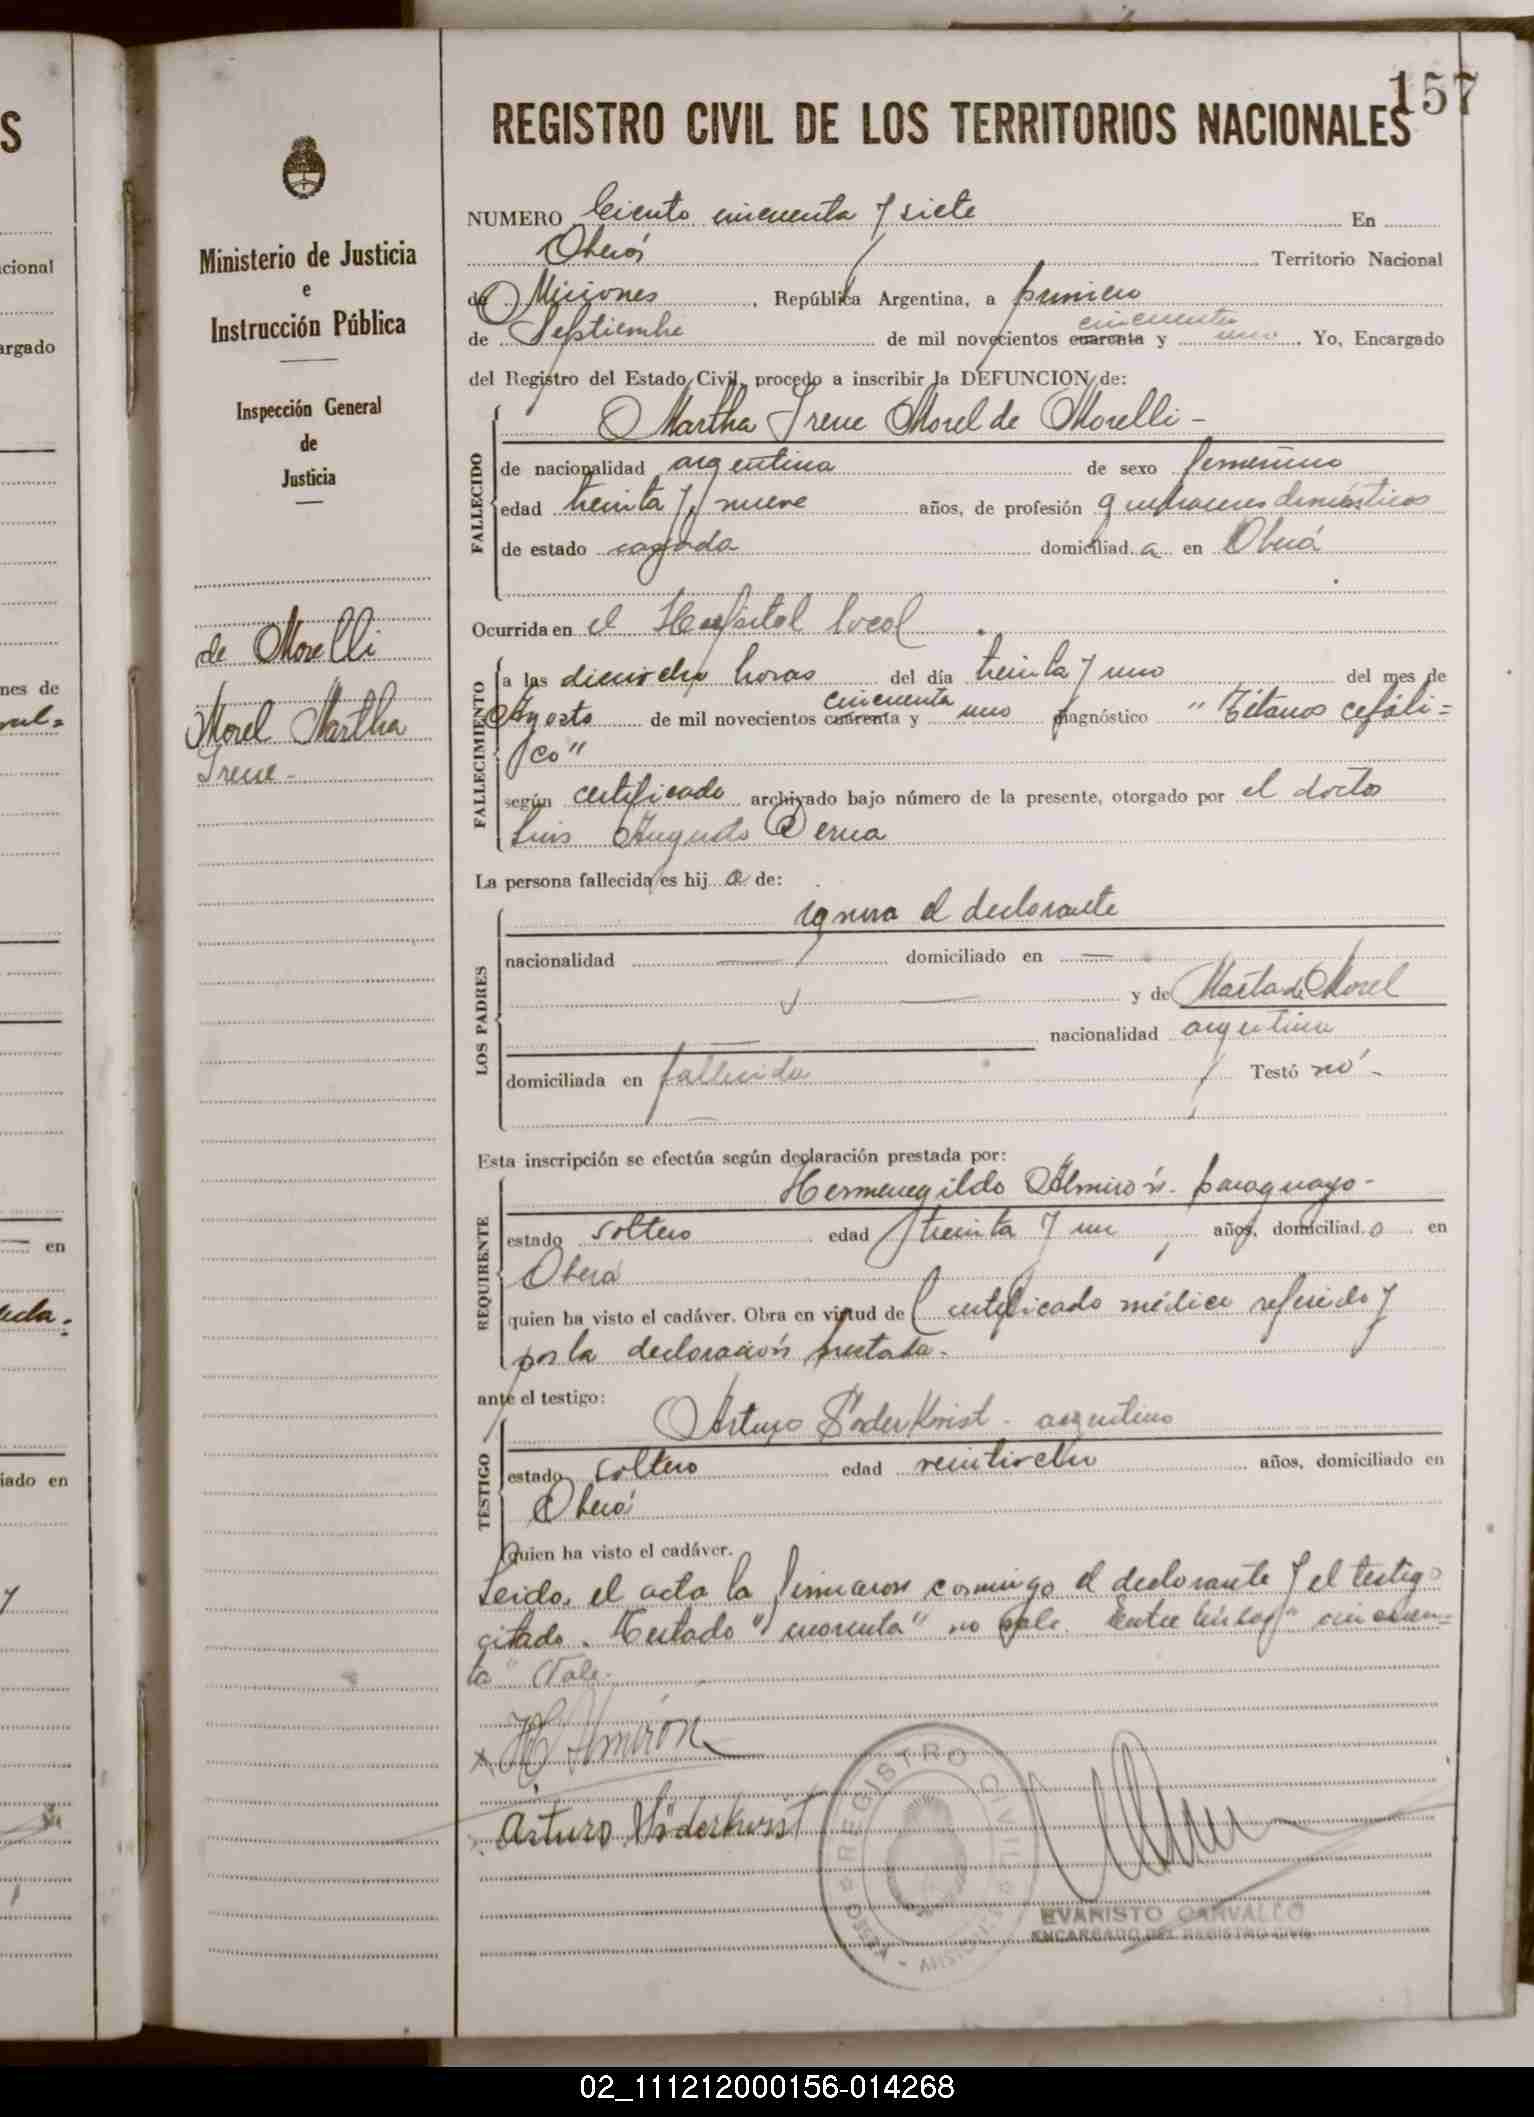 157
REGISTRO CIVIL DE LOS TERRITORIOS NACIONALES
Ministerio de Justicia
e
Instrucción Pública
Inspección General
de
Justicia
de Morelli
Morel Martha
Irene-
NUMERO Ciento cincuenta y siete En
Oberá Territorio Nacional
de Misiones, República Argentina, a primero
cincuenta
de Septiembre de mil novecientos cuarenta y uno. Yo, Encargado
del Registro del Estado Civil, procedo a inscribir la DEFUNCION de:
FALLECIDO
Martha Irene Morel de Morelli -
de nacionalidad argentina de sexo femenino
edad treinta y nueve años, de profesión quehaceres domésticos
de estado casada domiciliad a en Oberá
Ocurrida en el Hospital local
FALLECIMIENTO
a las dieciocho horas del día treinta y uno del mes de
cincuenta
Agosto de mil novecientos cuarenta y uno diagnóstico "Tétanos cefáli=
co"
según certificado archivado bajo número de la presente, otorgado por el doctor
Luis Augusto Derna
La persona fallecida es hij a de:
LOS PADRES
ignora el declarante
nacionalidad — domiciliado en —
y de Marta de Morel
nacionalidad argentina
domiciliada en fallecida Testó no -
Esta inscripción se efectúa según declaración prestada por:
REQUIRENTE
Hermenegildo Almirón. paraguayo -
estado soltero edad treinta y un años, domiciliad o en
Oberá
quien ha visto el cadáver. Obra en virtud de certificado médico referido y
por la declaración prestada.
ante el testigo:
TESTIGO
Arturo Söderkvist - argentino
estado soltero edad veintiocho años, domiciliado en
Oberá
Quien ha visto el cadáver.
Leido, el acta la firmaron conmigo el declarante y el testigo
citado. Testado "cuarenta" no vale. Entre lineas "cincuen=
ta" Vale.
H Almirón
Arturo Söderkvist
REGISTRO CIVIL
MISIONES
EVARISTO CARVALLO
ENCARGADO DEL REGISTRO CIVIL
S
cional
argado
nes de
en
iado en
02_111212000156-014268